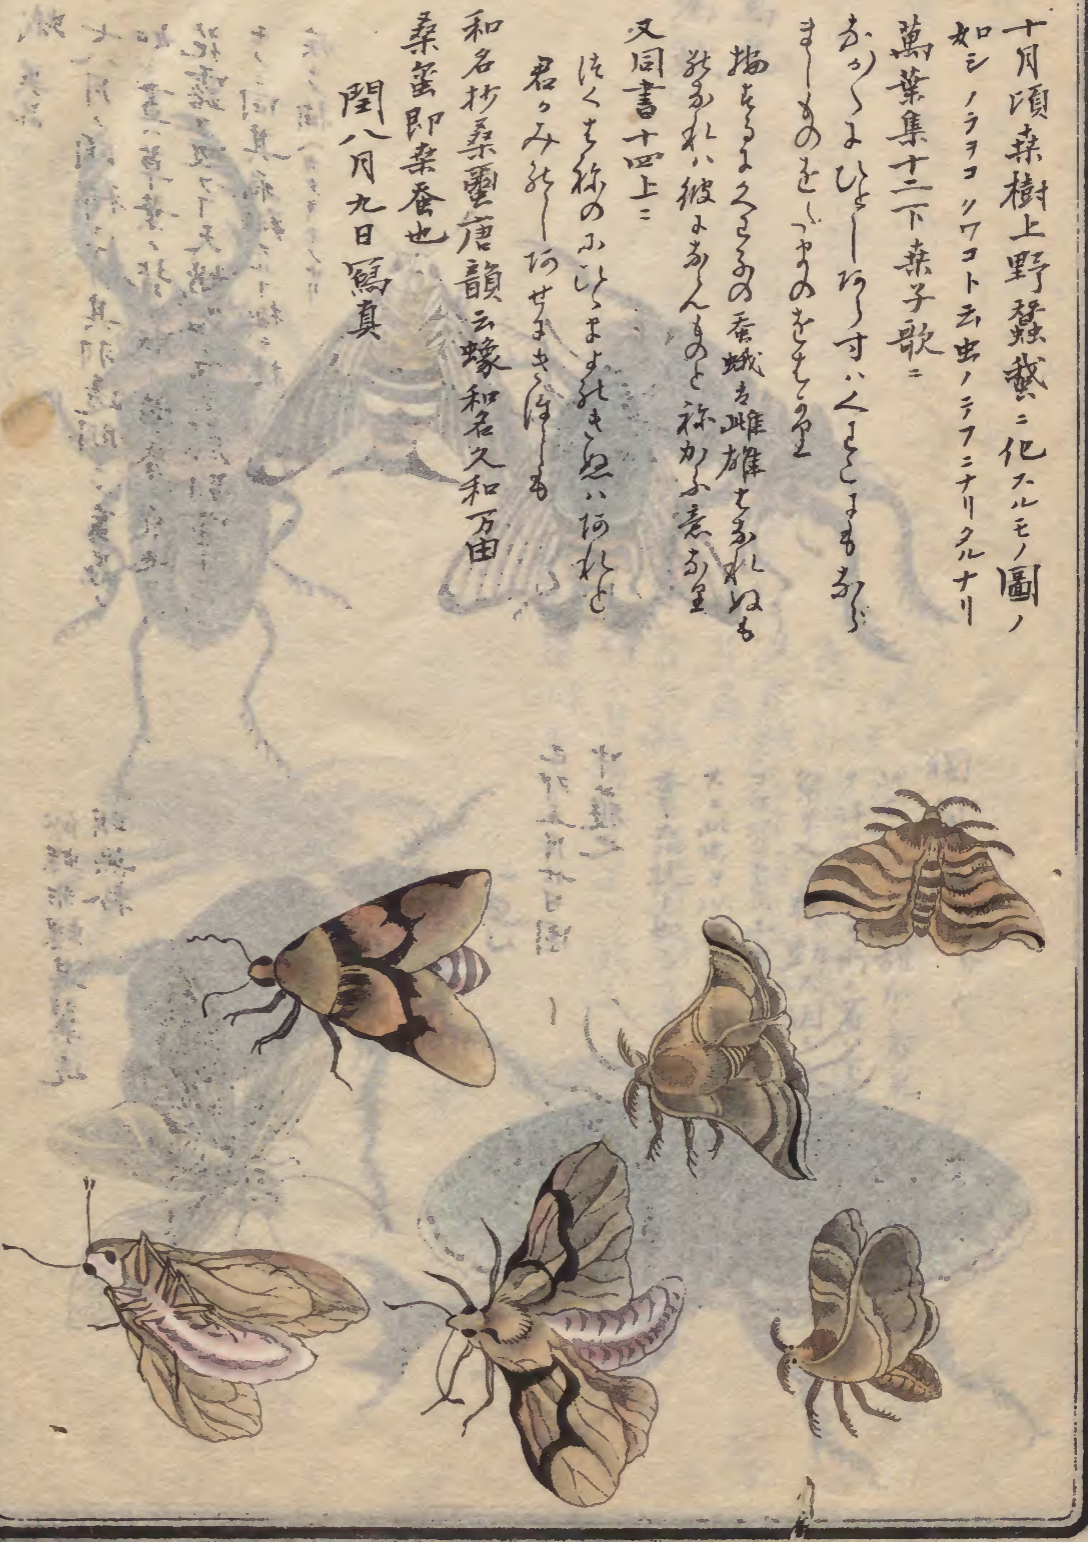 十月頃桒樹上野蠶蛾ニ化スルモノ圖ノ
如シノラヲコクワコト云虫ノテフニナリタルナリ
萬葉集十二下桒子歌ニ
なか〱にひとしあらすハくはこにもなら
ましものをたまのをはかり
按するにくはこの蚕蛾は雌雄はなれぬも
のなれハ彼にならんものと祢かふ意なり
又同書十四上ニ
つくはねのにひくはまよのきぬハあれと
君かみけしあせまきほしも
和名抄桑蠒唐韻云蟓和名久和万由
桑蠒即桒蚕也
閏八月九日寫真